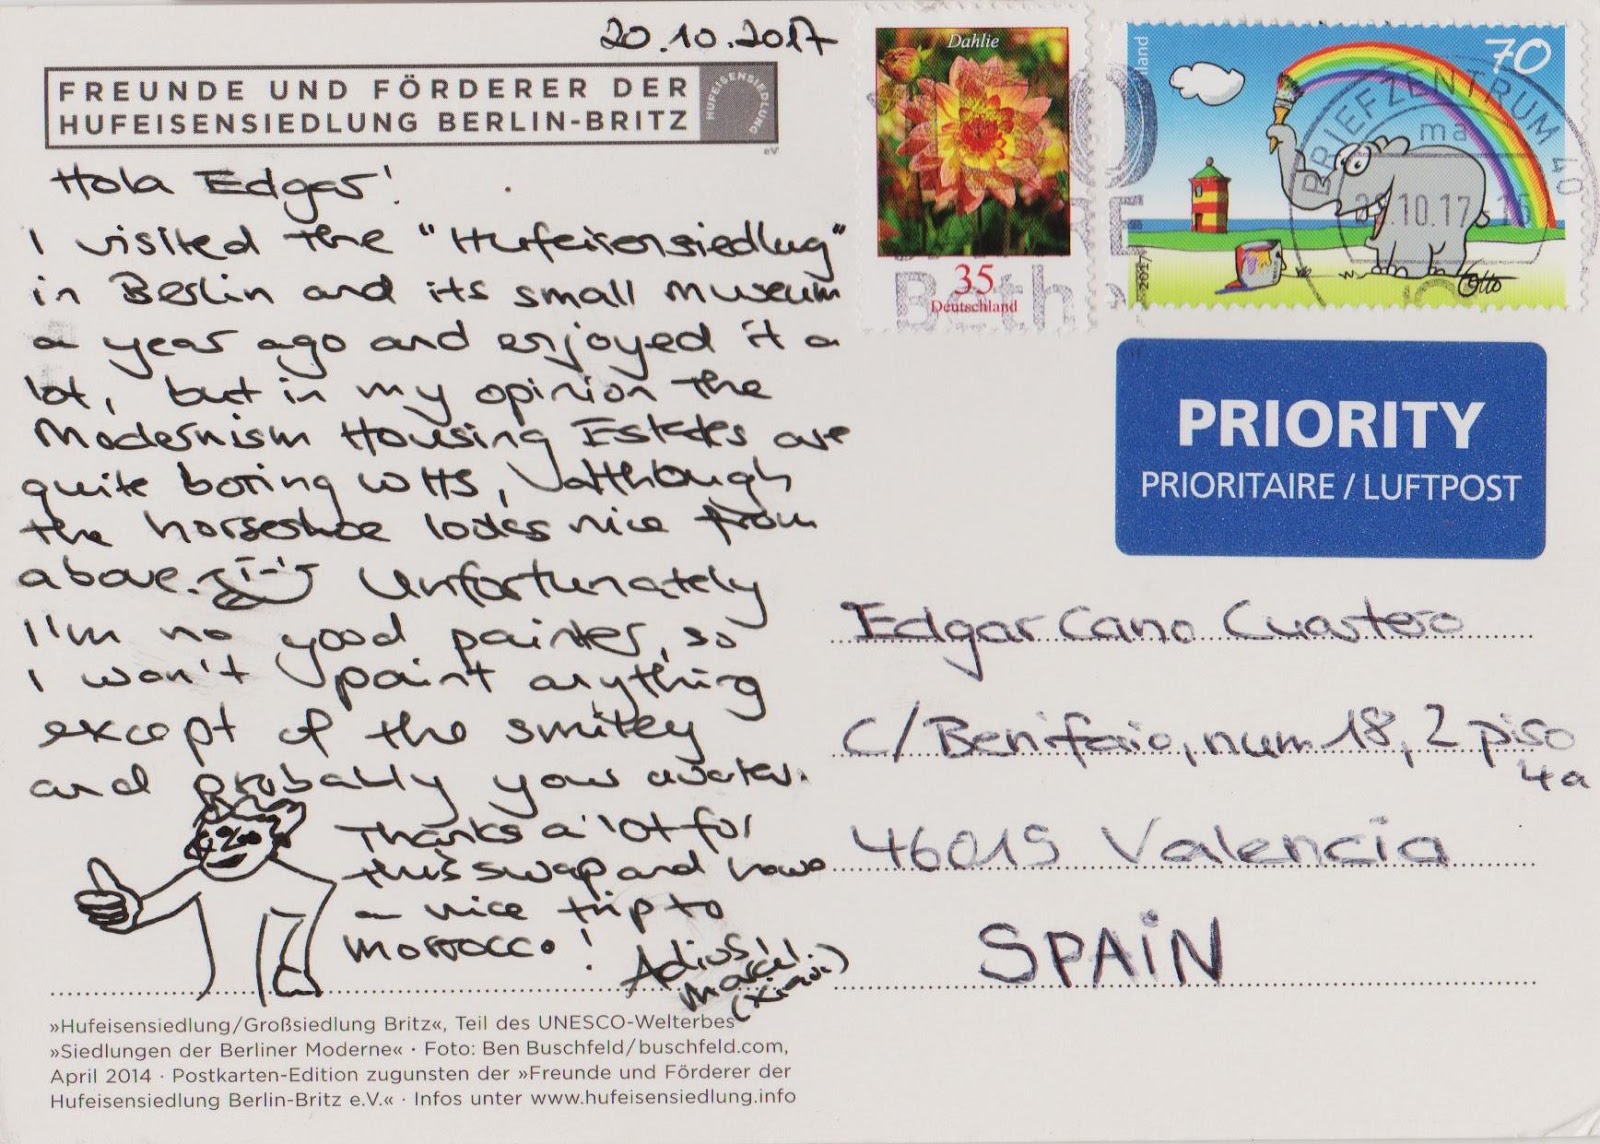 20.10.2017
FREUNDE UND FÖRDERER DER
HUFEISENSIEDLUNG BERLIN-BRITZ
HUFEISENSIEDLUNG
eV
Hola Edgar!
I visited the "Hufeisensiedlug"
in Berlin and its small museum
a year ago and enjoyed it a
lot, but in my opinion the
Modernism Housing Estates are
quite boring WHS, although
the horseshoe looks nice from
above. Unfortunately
I'm no good painter, so
I won't paint anything
except of the smiley
and probably your avatar.
Thanks a lot for
this swap and have
a nice trip to
Morrocco!
Adios!
Marcel.
(Xiquinho)
»Hufeisensiedlung/Großsiedlung Britz«, Teil des UNESCO-Welterbes
»Siedlungen der Berliner Moderne« · Foto: Ben Buschfeld/buschfeld.com,
April 2014 · Postkarten-Edition zugunsten der »Freunde und Förderer der
Hufeisensiedlung Berlin-Britz e.V.« · Infos unter www.hufeisensiedlung.info
Dahlie
35
Deutschland
70
2017
Otto
BRIEFZENTRUM 40
ma
.10.17-
Beth
PRIORITY
PRIORITAIRE / LUFTPOST
Edgar Cano Cuartero
C/Benifaio, num 18, 2 piso
4a
46015 Valencia
SPAIN